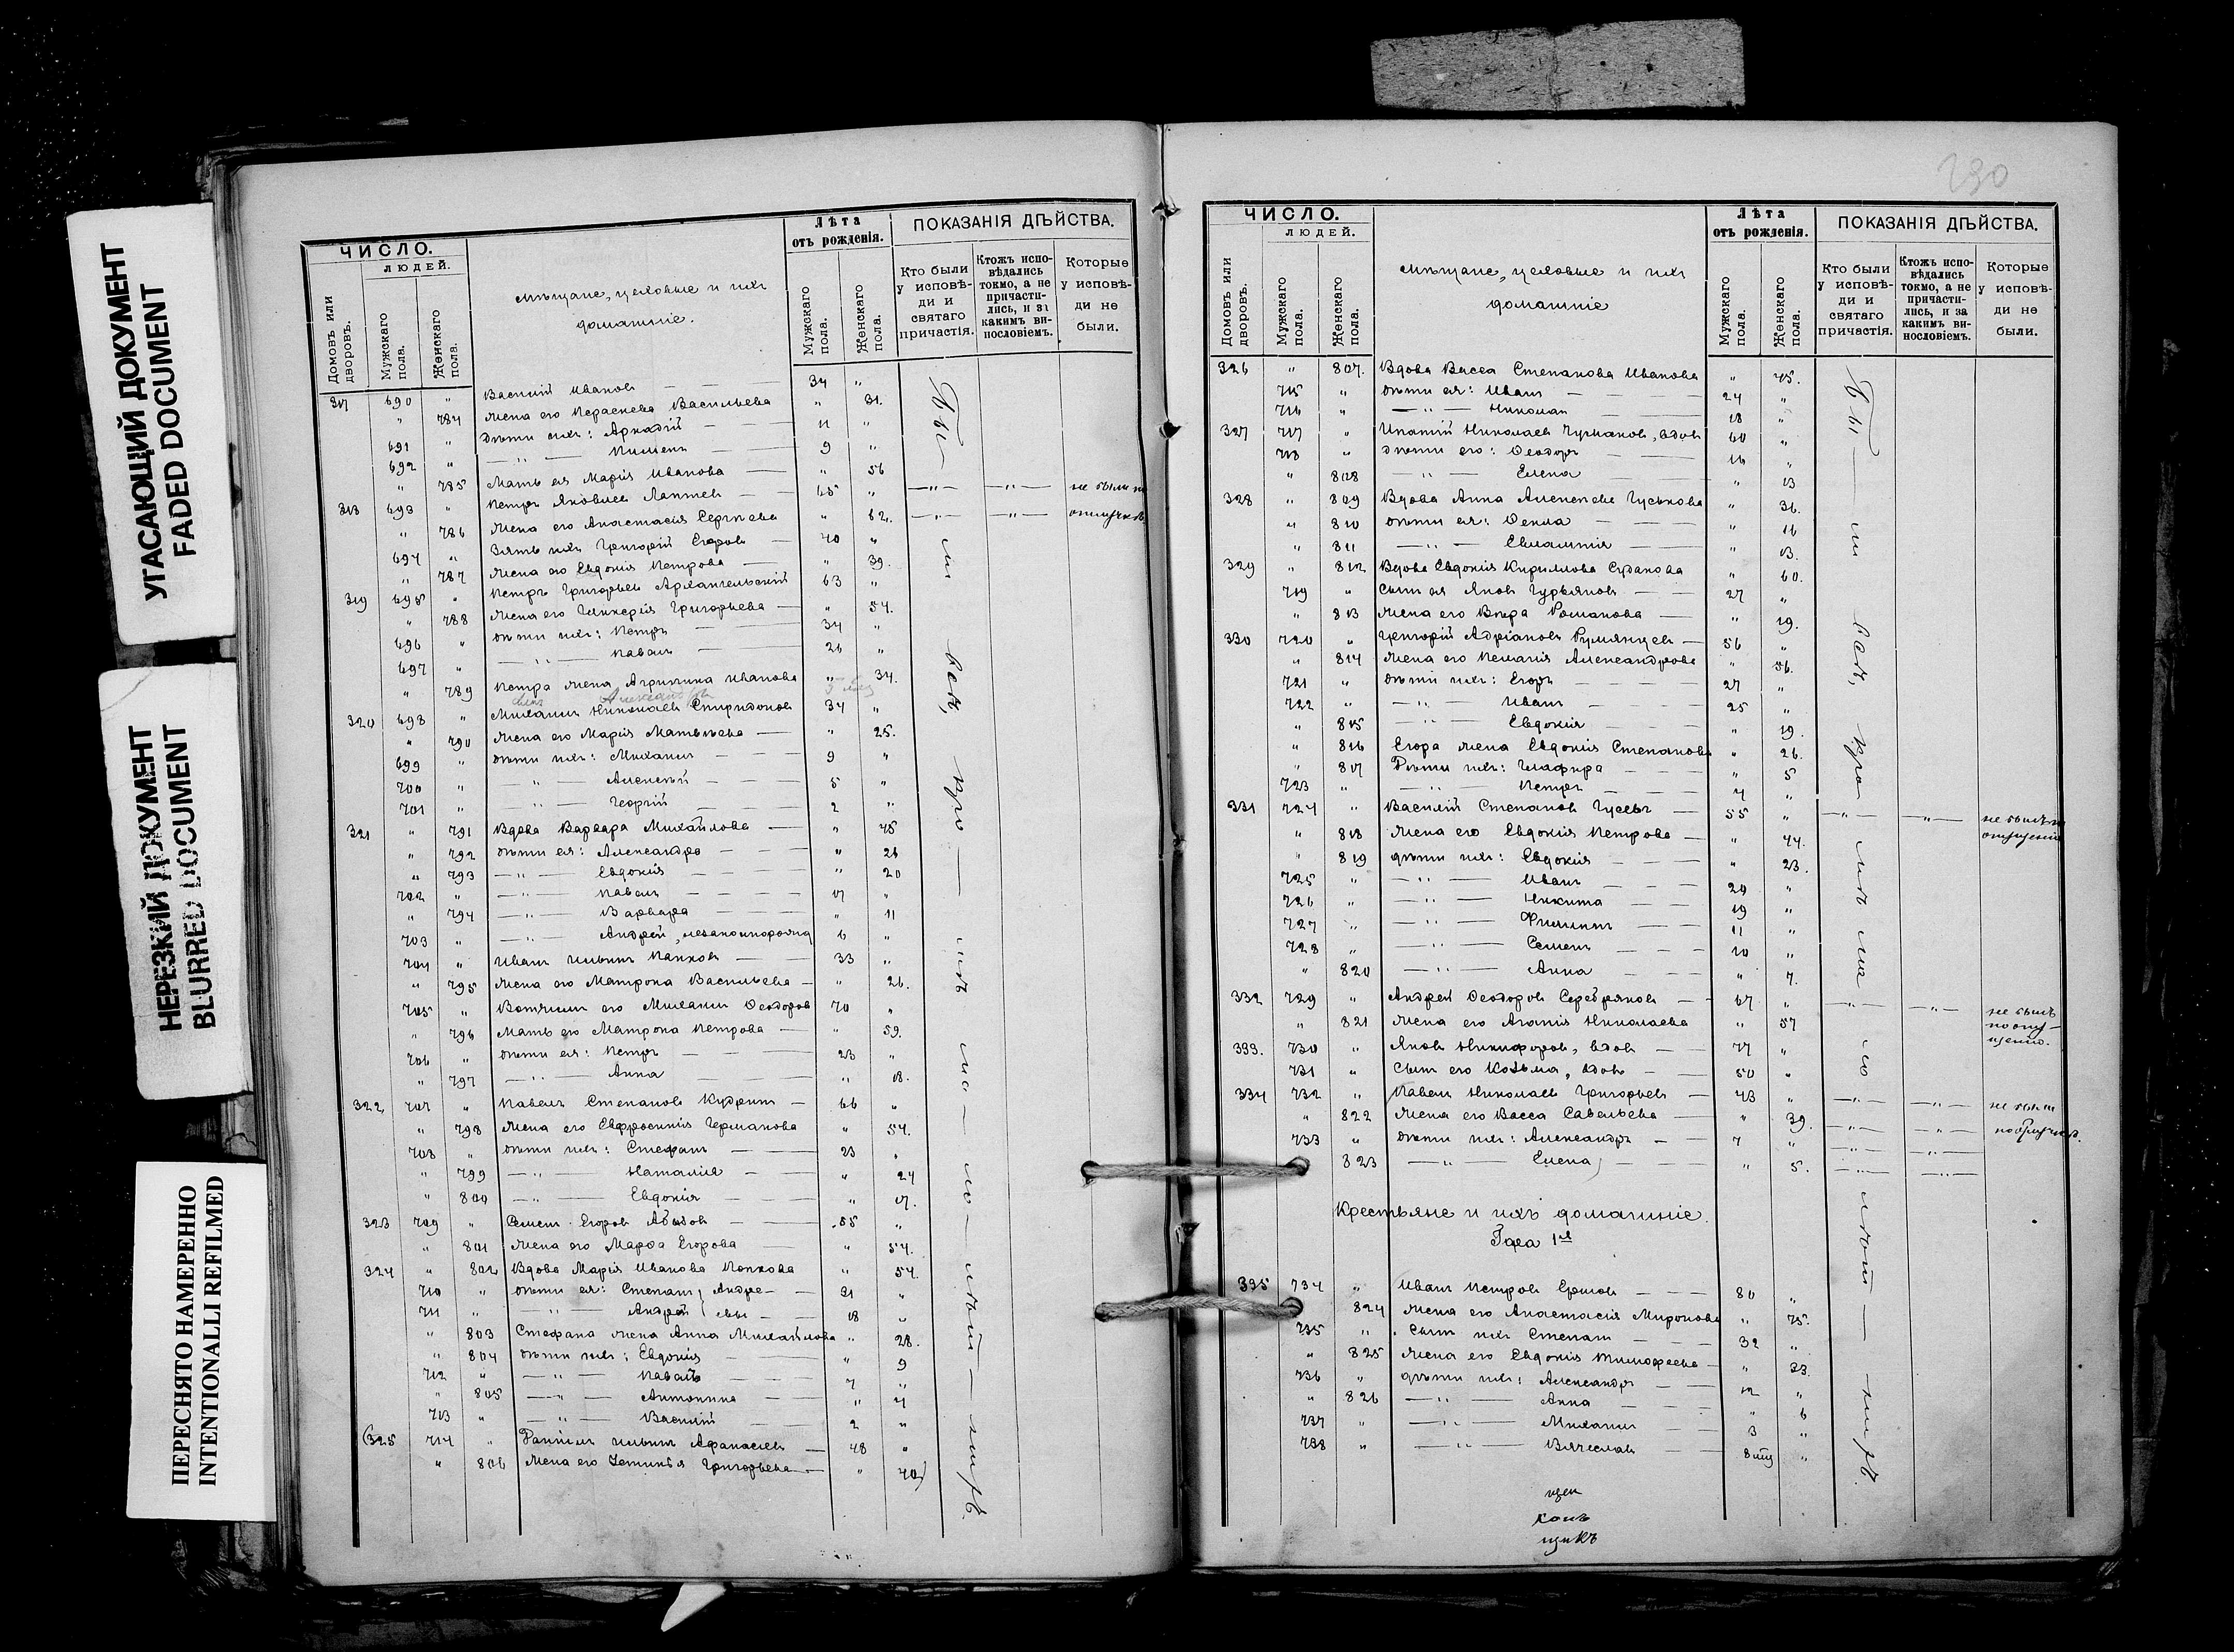 УГАСАЮЩИЙ ДОКУМЕНТ
FADED DOCUMENT
НЕРЕЗКИЙ ДОКУМЕНТ
BLURRED DOCUMENT
ПЕРЕСНЯТО НАМЕРЕННО
INTENTIONALLI REFILMED
ЧИСЛО.
ЛЮДЕЙ.
Домовъ или дворовъ.
Мужскаго пола.
Женскаго пола.
Мѣщане, цеховые и ихъ
домашніе.
Лѣта
отъ рожденія.
Мужскаго пола.
Женскаго пола.
ПОКАЗАНІЯ ДѢЙСТВА.
Кто были
у исповѣ-
ди и
святаго
причастія.
Ктожъ испо-
вѣдались
токмо, а не
причасти-
лись, и за
какимъ ви-
нословіемъ.
Которые
у исповѣ-
ди не
были.
317 690 " Василій Ивановъ 34 "
" 784 Жена его Параскева Васильева " 31.
691 " Дѣти ихъ: Аркадій 11 "
692 " —"— 9 "
" 785 Мать ея Марія Иванова " 56
318 693 " Петръ Яковлев Лаптев 65 " —"— —"— не были по
" 786 Жена его Анастасія Сергѣева " 62. —"— —"— отлучкѣ
694 " Зять ихъ Григорій Егоровъ 40 "
" 787 Жена его Евдокія Петрова " 39.
319 695 " Петръ Григорьев Архангельскій 63 "
" 788 Жена его Гликерія Григорьева " 54.
696 " Дѣти ихъ: Петръ 34 "
697 " —"— Павелъ 26 "
" 789 Петра жена Агрипина Иванова " 34.
сынъ Александръ
320 698 " Михаилъ Николаевъ Спиридоновъ 34 "
" 790 Жена его Марія Матвѣева " 25.
699 " Дѣти ихъ: Михаилъ 9 "
700 " —"— Алексѣй 5 "
701 " —"— Георгій 2 "
321 " 791 Вдова Варвара Михайлова " 45
" 792 Дѣти ея: Александра " 26
" 793 —"— Евдокія " 20
702 " —"— Павелъ 17 "
" 794 —"— Варвара " 11
703 " —"— Андрей, незаконорожд 6 "
704 " Иванъ Ильинъ Папковъ 33 "
" 795 Жена его Матрона Васильева " 26.
705 " Вотчимъ его Михаилъ Ѳеодоровъ 70 "
" 796 Мать его Матрона Петрова " 59.
706 " Дѣти ея: Петръ 23 "
" 797 —"— Анна " 18.
322. 707 " Павелъ Степановъ Кудринъ 66 "
" 798 Жена его Евфросинія Германова " 54.
708 " Дѣти ихъ: Стефанъ 23 "
" 799 —"— Наталія " 24
" 800 —"— Евдокія " 17.
323 709 " Семенъ Егоровъ 55 "
" 801 Жена его Марѳа Егорова " 54.
324 " 802 Вдова Марія Иванова Попкова " 54.
710 " Дѣти ея: Степанъ } Андре- 31 "
711 " —"— Андрей } евы 18 "
" 803 Стефана жена Анна Михайлова " 28.
" 804 Дѣти ихъ: Евдокія " 9
712 " —"— Павелъ 7 "
" 805 —"— Антонина " 4
713 " —"— Василій 2 "
325 714 " Даніилъ Ильинъ Афанасьевъ 48 "
" 806 Жена его Григорьева " 40
Бы — ли всѣ, кро — мѣ ма — ло — лѣт — нихъ.
230
ЧИСЛО.
ЛЮДЕЙ.
Домовъ или дворовъ.
Мужскаго пола.
Женскаго пола.
Мѣщане, цеховые и ихъ
домашніе
Лѣта
отъ рожденія.
Мужскаго пола.
Женскаго пола.
ПОКАЗАНІЯ ДѢЙСТВА.
Кто были
у исповѣ-
ди и
святаго
причастія.
Ктожъ испо-
вѣдались
токмо, а не
причасти-
лись, и за
какимъ ви-
нословіемъ.
Которые
у исповѣ-
ди не
были.
326 " 807. Вдова Васса Степанова Иванова " 45.
715 " Дѣти ея: Иванъ 24 "
716 " —"— Николай 18 "
327 717 " Ипатій Николаевъ, вдов 60 "
718 " Дѣти его: Ѳеодоръ 16 "
" 808 —"— Елена " 13
328 " 809 Вдова Анна Алексѣева Гуськова " 36.
" 810 Дѣти ея: Ѳекла " 16
" 811 —"— Евлампія " 13.
329 " 812 Вдова Евдокія Кирилова Судакова " 60.
719 " Сынъ ея Яковъ Гурьяновъ 27 "
" 813 Жена его Вѣра Романова " 19.
330 720 " Григорій Адріановъ Румянцевъ 56 "
" 814 Жена его Пелагія Александрова " 56.
721 " Дѣти ихъ: Егоръ 27 "
722 " —"— Иванъ 25 "
" 815 —"— Евдокія " 19.
" 816 Егора жена Евдокія Степанова " 26.
" 817 Дѣти ихъ: Глафира " 5
723 " —"— Петръ 4 "
331 724 " Василій Степановъ Гусевъ 55 " —"— —"— не былъ по
" 818 Жена его Евдокія Петрова " 44. опущенію
" 819 Дѣти ихъ: Евдокія " 23.
725 " —"— Иванъ 20 "
726 " —"— Никита 19 "
727 " —"— Филиппъ 11 "
728 " —"— Семенъ 10 "
" 820 —"— Анна " 7.
332 729 " Андрей Ѳеодоровъ Серебряковъ 67 " —"— —"— не былъ
" 821 Жена его Агапія Николаева " 57 по опу-
щенію.
333. 730 " Яковъ Никифоровъ, вдовъ 77 "
731 " Сынъ его Козьма, вдовъ 50 "
334 732 " Павелъ Николаевъ Григорьевъ 43 " —"— —"— не были
" 822 Жена его Васса Савельева " 39. —"— —"— по отлучкѣ.
733 " Дѣти ихъ: Александръ 7 " —"—
823 —"— Елена " 5. —"— —"—
Крестьяне и ихъ домашніе.
Гдеа 1ая
335 734 " Иванъ Петровъ Ершовъ 80 "
824 Жена его Анастасія Миронова " 75.
735 " Сынъ ихъ Степанъ 32 "
" 825 Жена его Евдокія Тимофеева " 33.
736 " Дѣти ихъ: Александръ 12 "
" 826 —"— Анна " 6
737 " —"— Михаилъ 3 "
738 " —"— Вячеславъ 8 мѣс "
Бы — ли всѣ, кро — мѣ ма — ло — лѣт — нихъ.